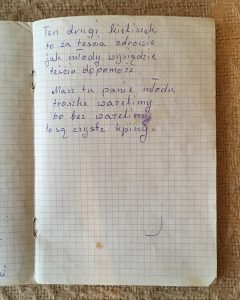 Ten drugi kieliszek
to za teścia zdrowie
jak młody wyjdzie
teścia dopomoże
Masz tu panie młodu
troszke wazelimy
bo bez wazelimy
to są czyste kpiny.